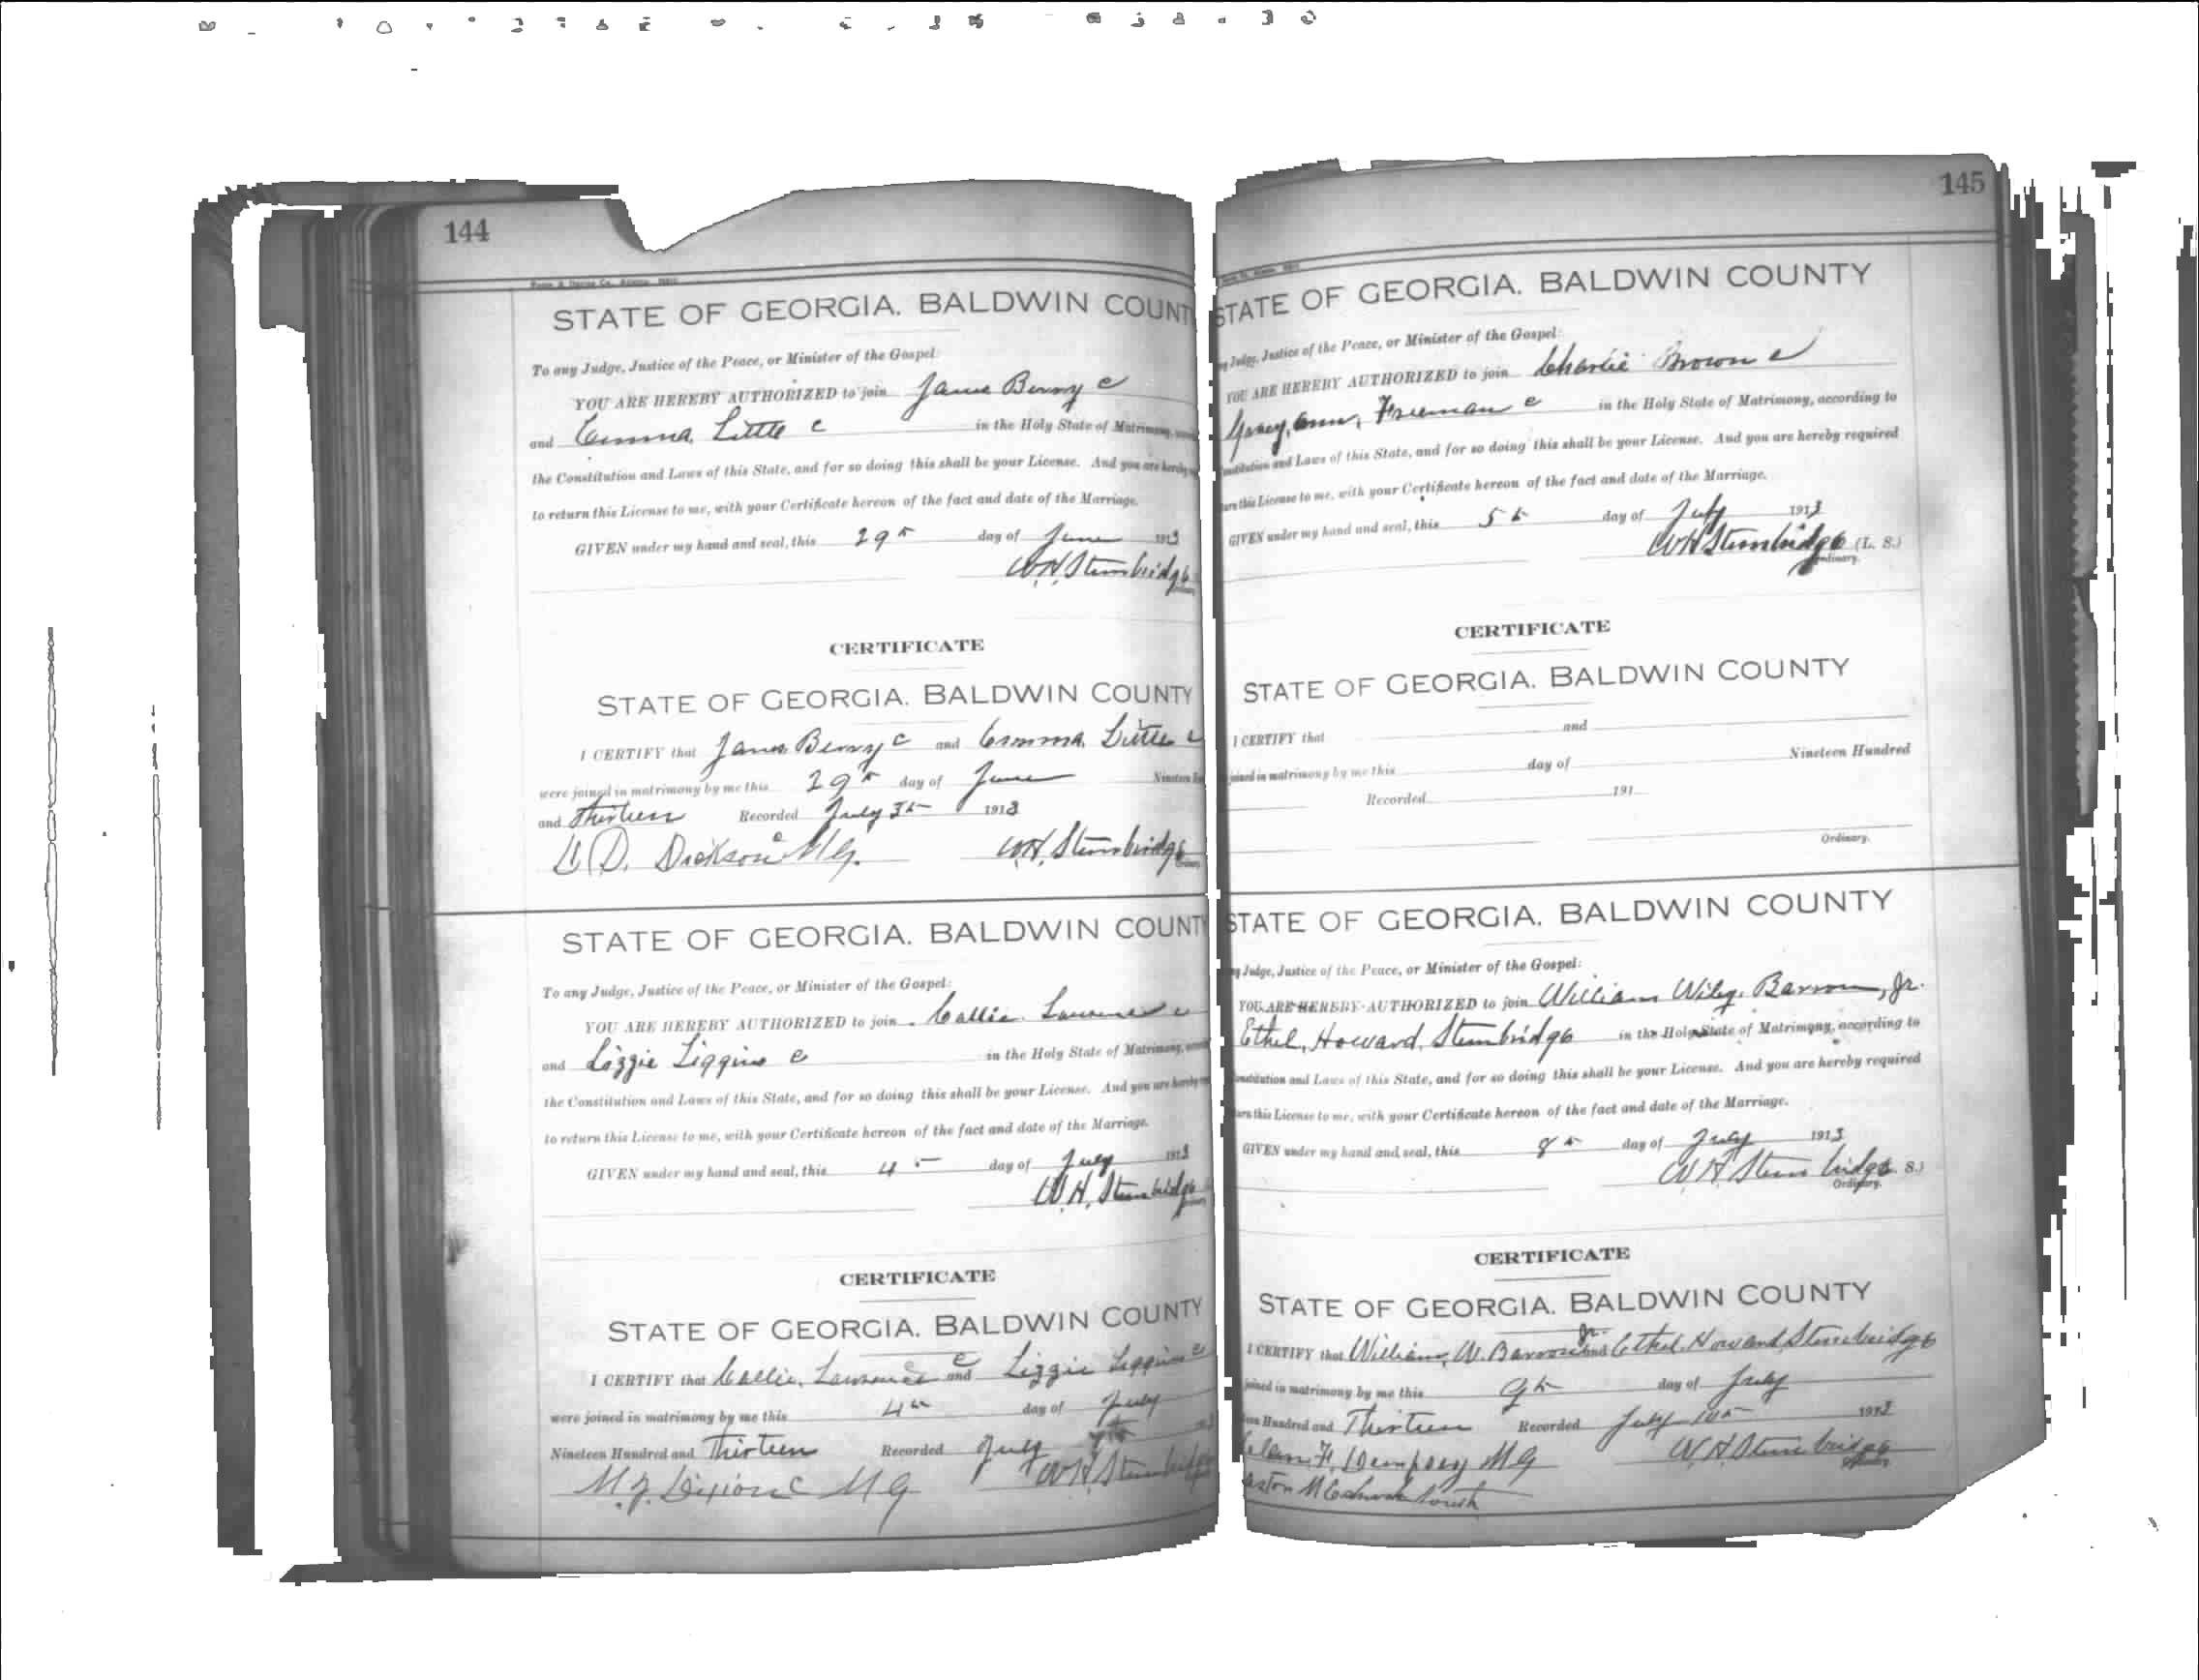 144
STATE OF GEORGIA. BALDWIN COUNT
To any Judge, Justice of the Peace, or Minister of the Gospel:
YOU ARE HEREBY AUTHORIZED to join Berry c
and Emma Little c in the Holy State of Matrimony,
the Constitution and Laws of this State, and for so doing this shall be your License. And you are hereby
to return this License to me, with your Certificate hereon of the fact and date of the Marriage.
GIVEN under my hand and seal, this 29th day of June 1913
W.H. Stembridge
CERTIFICATE
STATE OF GEORGIA. BALDWIN COUNTY
I CERTIFY that Berry c and Emma Little c
were joined in matrimony by me this 29th day of June Nineteen
and Thirteen Recorded July 1913
D. Dickson c M.G. W.H. Stembridge
STATE OF GEORGIA. BALDWIN COUNT
To any Judge, Justice of the Peace, or Minister of the Gospel:
YOU ARE HEREBY AUTHORIZED to join Callie Lawrence c
and Lizzie Liggins c in the Holy State of Matrimony,
the Constitution and Laws of this State, and for so doing this shall be your License. And you are hereby
to return this License to me, with your Certificate hereon of the fact and date of the Marriage.
GIVEN under my hand and seal, this 4th day of July 1913
W.H. Stembridge
CERTIFICATE
STATE OF GEORGIA. BALDWIN COUNTY
I CERTIFY that Callie Lawrence c and Lizzie Liggins c
were joined in matrimony by me this 4th day of July
Nineteen Hundred and Thirteen Recorded July
M.G. W.H. Stembridge
145
STATE OF GEORGIA. BALDWIN COUNTY
Judge, Justice of the Peace, or Minister of the Gospel:
YOU ARE HEREBY AUTHORIZED to join Charlie Brown c
Ann, Freeman c in the Holy State of Matrimony, according to
and Laws of this State, and for so doing this shall be your License. And you are hereby required
this License to me, with your Certificate hereon of the fact and date of the Marriage.
GIVEN under my hand and seal, this 5th day of July 1913
W.H. Stembridge (L. S.)
Ordinary.
CERTIFICATE
STATE OF GEORGIA. BALDWIN COUNTY
I CERTIFY that and
joined in matrimony by me this day of Nineteen Hundred
Recorded 191
Ordinary.
STATE OF GEORGIA. BALDWIN COUNTY
Judge, Justice of the Peace, or Minister of the Gospel:
YOU ARE HEREBY AUTHORIZED to join William Wiley Barron, Jr.
Ethel, Howard, Stembridge in the Holy State of Matrimony, according to
and Laws of this State, and for so doing this shall be your License. And you are hereby required
this License to me, with your Certificate hereon of the fact and date of the Marriage.
GIVEN under my hand and seal, this 8th day of July 1913
W.H. Stembridge S.)
Ordinary.
CERTIFICATE
STATE OF GEORGIA. BALDWIN COUNTY
I CERTIFY that William, W. Barron Jr. and Ethel Howard Stembridge
joined in matrimony by me this 9th day of July
Hundred and Thirteen Recorded July 10th 1913
Dempsey M G W.H. Stembridge